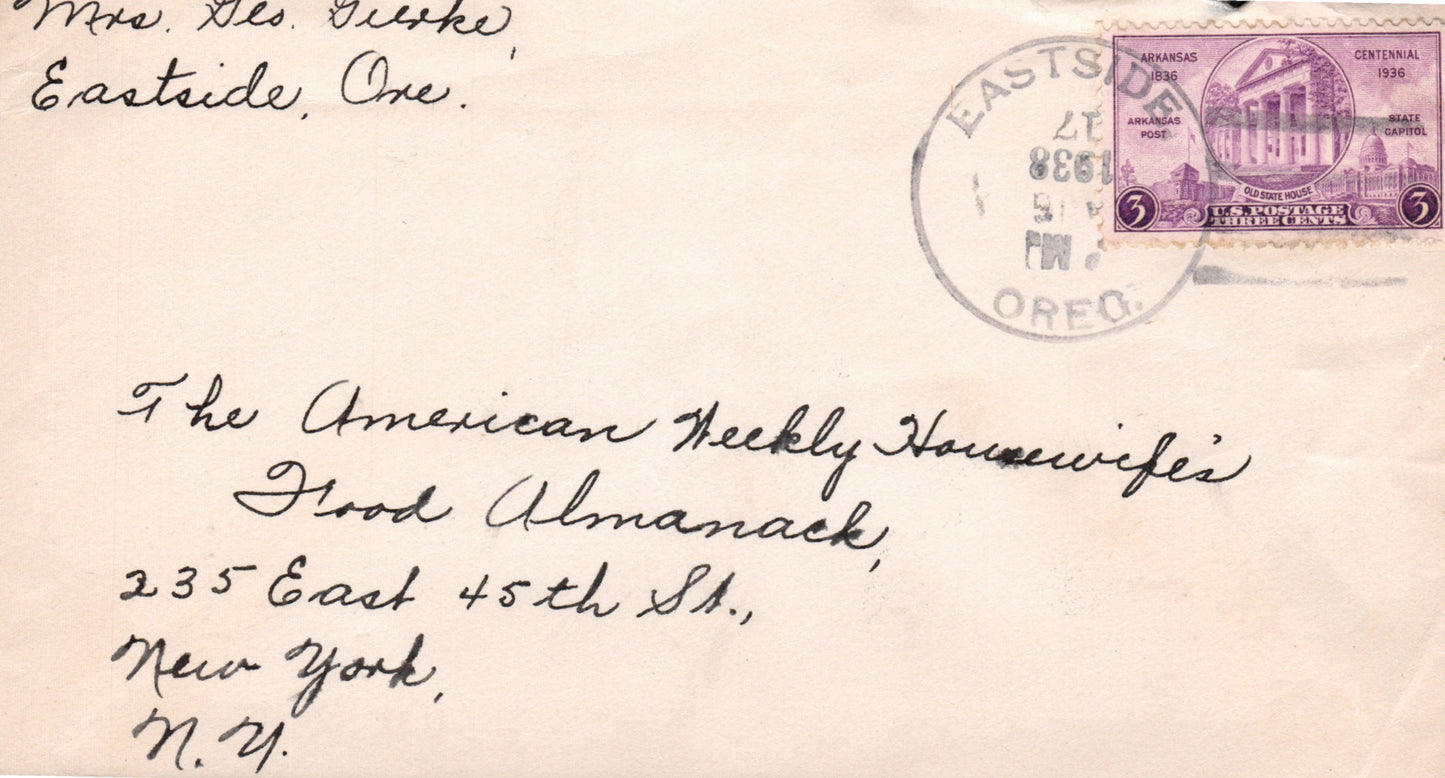 Mrs. Geo. Gierke,
Eastside, Ore.
EASTSIDE
17
1938
PM
OREG.
ARKANSAS
1836
CENTENNIAL
1936
ARKANSAS
POST
STATE
CAPITOL
OLD STATE HOUSE
3
U.S. POSTAGE
THREE CENTS
3
The American Weekly Housewife's
Food Almanack,
235 East 45th St.,
New York,
N.Y.